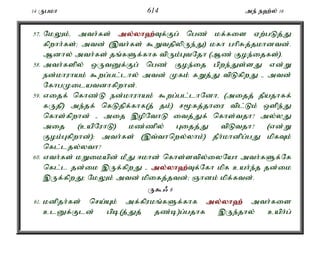 14 ருபமா 614 அந் நஹ்ல் 16
57. மேலும், அவர்கள் அல்லாஹ்வுக்குப் பெண் மக்களை ஏற்படுத்து
கிறார்கள்; அவன் (இவர்கள் கூறுவதிலிருந்து) மகா பரிசுத்தமானவன்.
ஆனால் அவர்கள் தங்களுக்காக விரும்புவதோ (ஆண் குழந்தைகள்).
58. அவர்களில் ஒருவனுக்குப் பெண் குழந்தை பிறந்துள்ளது என்று
நன்மாராயம் கூறப்பட்டால் அவன் முகம் கறுத்து விடுகிறது - அவன்
கோபமுடையவனாகிறான்.
59. எதைக் கொண்டு நன்மாராயம் கூறப்பட்டானோ, (அதைத் தீயதாகக்
கருதி) அந்தக் கெடுதிக்காக(த் தம்) சமூகத்தாரை விட்டும் ஒளிந்து
கொள்கிறான் - அதை இழிவோடு வைத்துக் கொள்வதா? அல்லது
அதை (உயிரோடு) மண்ணில் புதைத்து விடுவதா? (என்று
குழம்புகிறான்); அவர்கள் (இவ்வாறெல்லாம்) தீர்மானிப்பது மிகவும்
கெட்டதல்லவா?
60. எவர்கள் மறுமையின் மீது ஈமான் கொள்ளவில்லையோ அவர்களுக்கே
கெட்ட தன்மை இருக்கிறது - அல்லாஹ்வுக்கோ மிக உயர்ந்த தன்மை
இருக்கிறது; மேலும் அவன் மிகைத்தவன்; ஞானம் மிக்கவன்.
ருகூஃ 8
61. மனிதர்கள் செய்யும் அக்கிரமங்களுக்காக அல்லாஹ் அவர்களை
உடனுக்குடன் பிடி(த்துத் தண்டி)ப்பதாக இருந்தால் உயிர்ப்